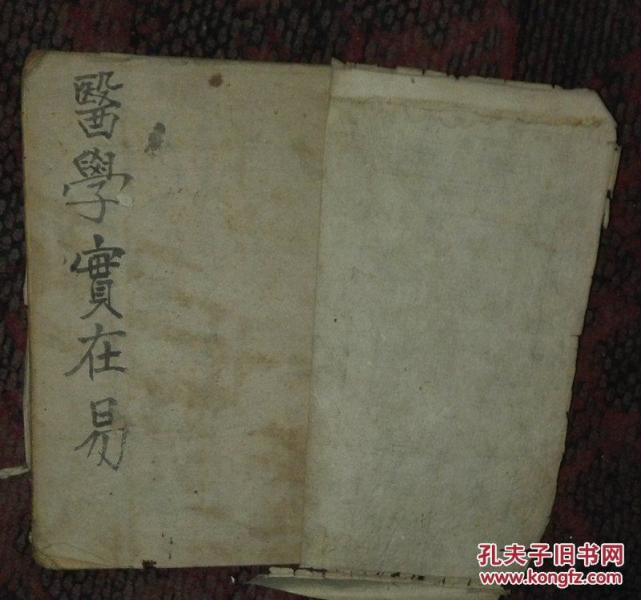 醫學實在易
孔夫子旧书网
www.kongfz.com